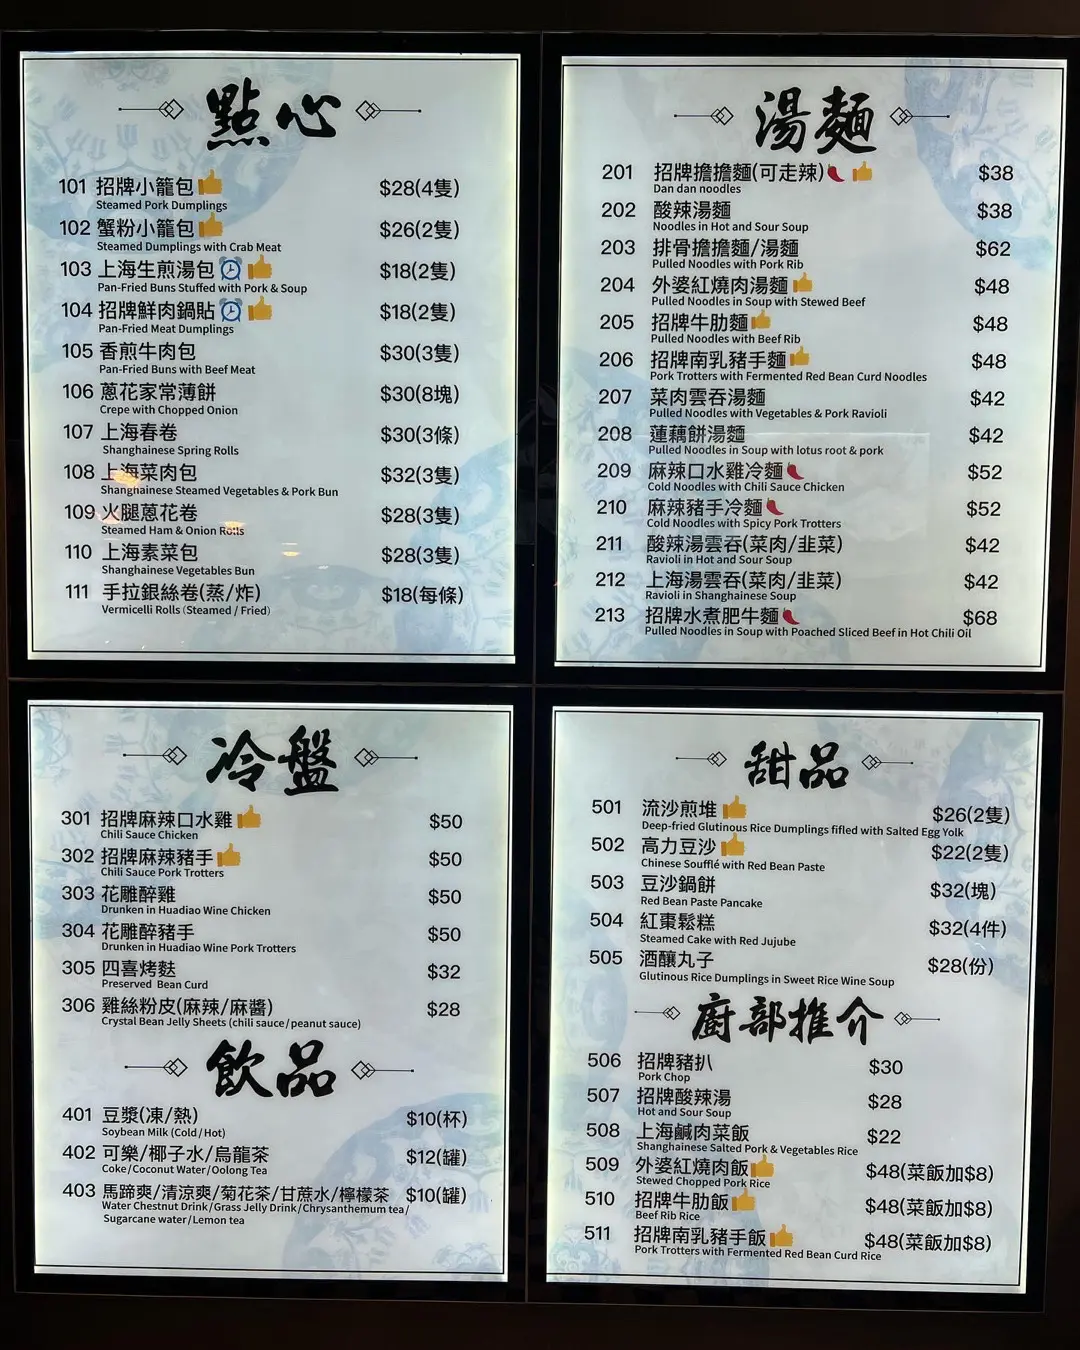 點心
101 招牌小籠包 $28(4隻)
Steamed Pork Dumplings
102 蟹粉小籠包 $26(2隻)
Steamed Dumplings with Crab Meat
103 上海生煎湯包 $18(2隻)
Pan-Fried Buns Stuffed with Pork & Soup
104 招牌鮮肉鍋貼 $18(2隻)
Pan-Fried Meat Dumplings
105 香煎牛肉包 $30(3隻)
Pan-Fried Buns with Beef Meat
106 蔥花家常薄餅 $30(8塊)
Crepe with Chopped Onion
107 上海春卷 $30(3條)
Shanghainese Spring Rolls
108 上海菜肉包 $32(3隻)
Shanghainese Steamed Vegetables & Pork Bun
109 火腿蔥花卷 $28(3隻)
Steamed Ham & Onion Rolls
110 上海素菜包 $28(3隻)
Shanghainese Vegetables Bun
111 手拉銀絲卷(蒸/炸) $18(每條)
Vermicelli Rolls (Steamed / Fried)
湯麵
201 招牌擔擔麵(可走辣) $38
Dan dan noodles
202 酸辣湯麵 $38
Noodles in Hot and Sour Soup
203 排骨擔擔麵/湯麵 $62
Pulled Noodles with Pork Rib
204 外婆紅燒肉湯麵 $48
Pulled Noodles in Soup with Stewed Beef
205 招牌牛肋麵 $48
Pulled Noodles with Beef Rib
206 招牌南乳豬手麵 $48
Pork Trotters with Fermented Red Bean Curd Noodles
207 菜肉雲吞湯麵 $42
Pulled Noodles with Vegetables & Pork Ravioli
208 蓮藕餅湯麵 $42
Pulled Noodles in Soup with lotus root & pork
209 麻辣口水雞冷麵 $52
Cold Noodles with Chili Sauce Chicken
210 麻辣豬手冷麵 $52
Cold Noodles with Spicy Pork Trotters
211 酸辣湯雲吞(菜肉/韭菜) $42
Ravioli in Hot and Sour Soup
212 上海湯雲吞(菜肉/韭菜) $42
Ravioli in Shanghainese Soup
213 招牌水煮肥牛麵 $68
Pulled Noodles in Soup with Poached Sliced Beef in Hot Chili Oil
冷盤
301 招牌麻辣口水雞 $50
Chili Sauce Chicken
302 招牌麻辣豬手 $50
Chili Sauce Pork Trotters
303 花雕醉雞 $50
Drunken in Huadiao Wine Chicken
304 花雕醉豬手 $50
Drunken in Huadiao Wine Pork Trotters
305 四喜烤麩 $32
Preserved Bean Curd
306 雞絲粉皮(麻辣/麻醬) $28
Crystal Bean Jelly Sheets (chili sauce/peanut sauce)
飲品
401 豆漿(凍/熱) $10(杯)
Soybean Milk (Cold/Hot)
402 可樂/椰子水/烏龍茶 $12(罐)
Coke/Coconut Water/Oolong Tea
403 馬蹄爽/清涼爽/菊花茶/甘蔗水/檸檬茶 $10(罐)
Water Chestnut Drink/Grass Jelly Drink/Chrysanthemum tea/
Sugarcane water/Lemon tea
甜品
501 流沙煎堆 $26(2隻)
Deep-fried Glutinous Rice Dumplings fifled with Salted Egg Yolk
502 高力豆沙 $22(2隻)
Chinese Soufflé with Red Bean Paste
503 豆沙鍋餅 $32(塊)
Red Bean Paste Pancake
504 紅棗鬆糕 $32(4件)
Steamed Cake with Red Jujube
505 酒釀丸子 $28(份)
Glutinous Rice Dumplings in Sweet Rice Wine Soup
廚部推介
506 招牌豬扒 $30
Pork Chop
507 招牌酸辣湯 $28
Hot and Sour Soup
508 上海鹹肉菜飯 $22
Shanghainese Salted Pork & Vegetables Rice
509 外婆紅燒肉飯 $48(菜飯加$8)
Stewed Chopped Pork Rice
510 招牌牛肋飯 $48(菜飯加$8)
Beef Rib Rice
511 招牌南乳豬手飯 $48(菜飯加$8)
Pork Trotters with Fermented Red Bean Curd Rice